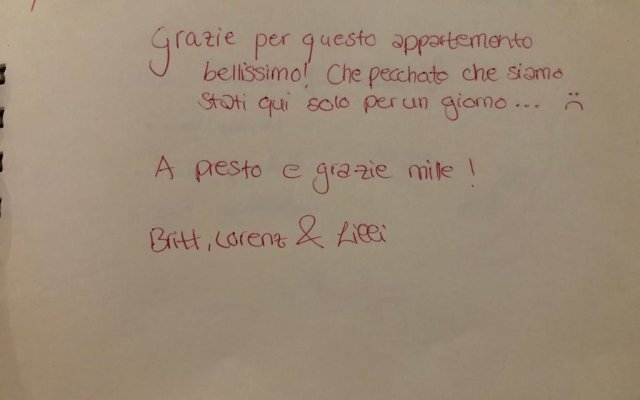 Grazie per questo appartemento
bellissimo! Che pecchato che siamo
stati qui solo per un giorno... :(
A presto e grazie mille!
Britt, Lorenz & Lilli